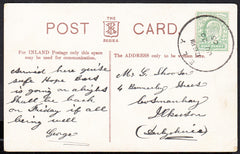 POST CARD
For INLAND Postage only this space may be used for communication.
The ADDRESS only to be written here.
Arrived here quite
safe Hope Bert
is going on alright
Shall be back
on Friday if all
being well
George
Mr G.
4
Cossmanhay
Ilkeston
(Derbyshire)